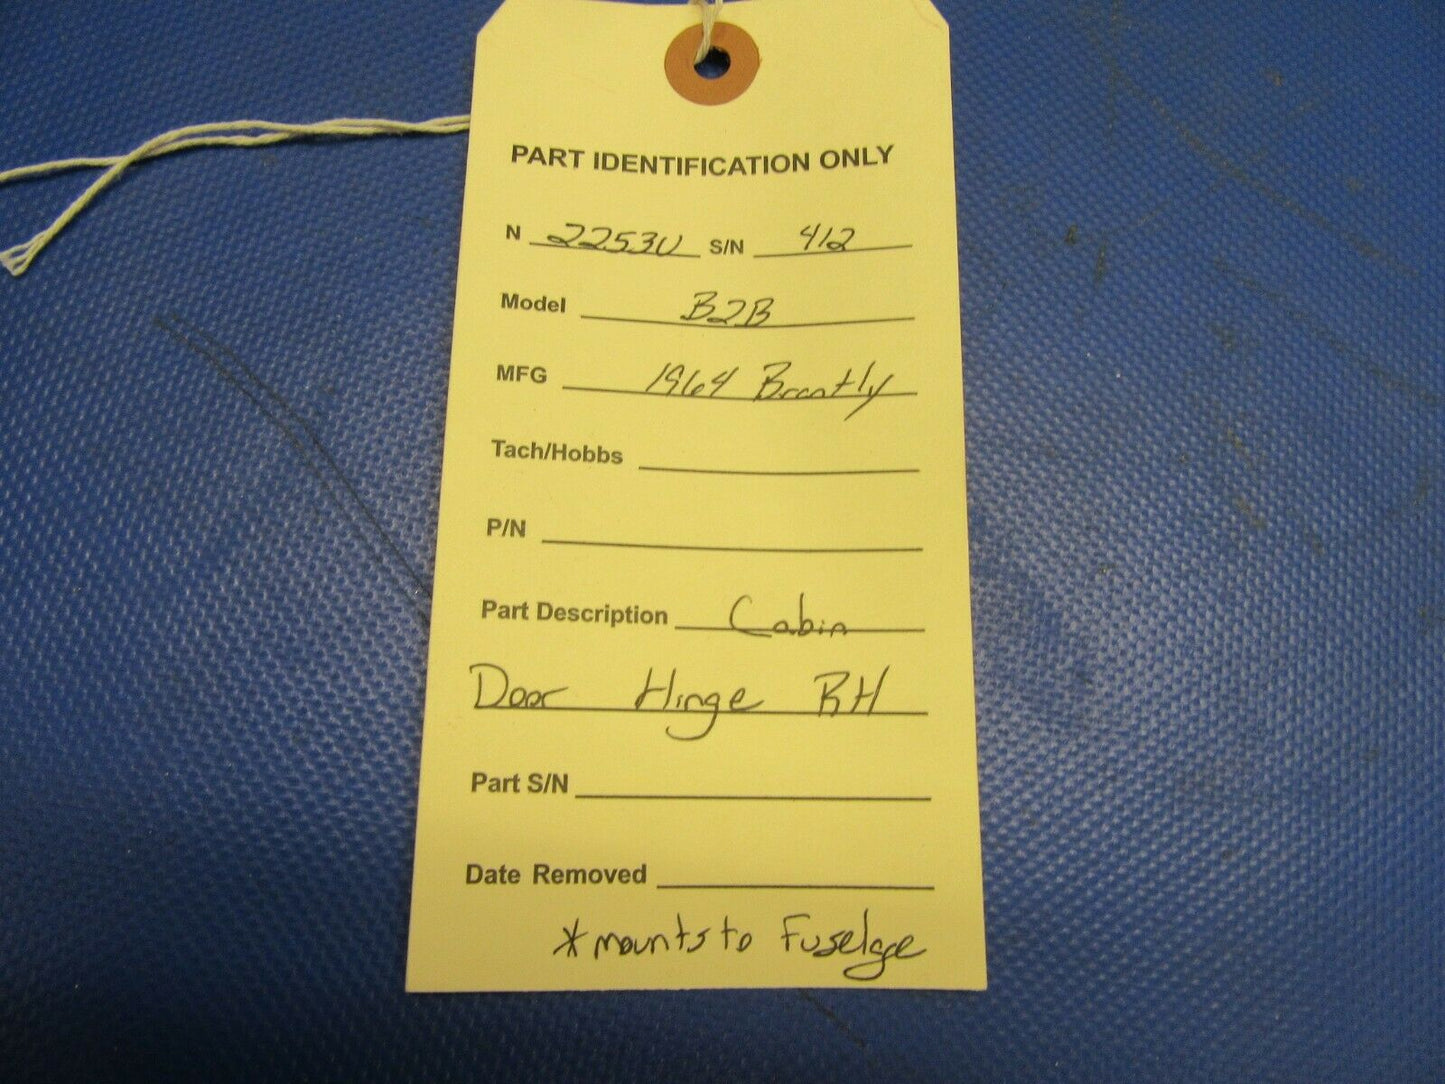 PART IDENTIFICATION ONLY
N 2253U S/N 412
Model B2B
MFG 1964 Brantly
Tach/Hobbs
P/N
Part Description Cabin
Door Hinge RH
Part S/N
Date Removed
*mounts to Fuselge